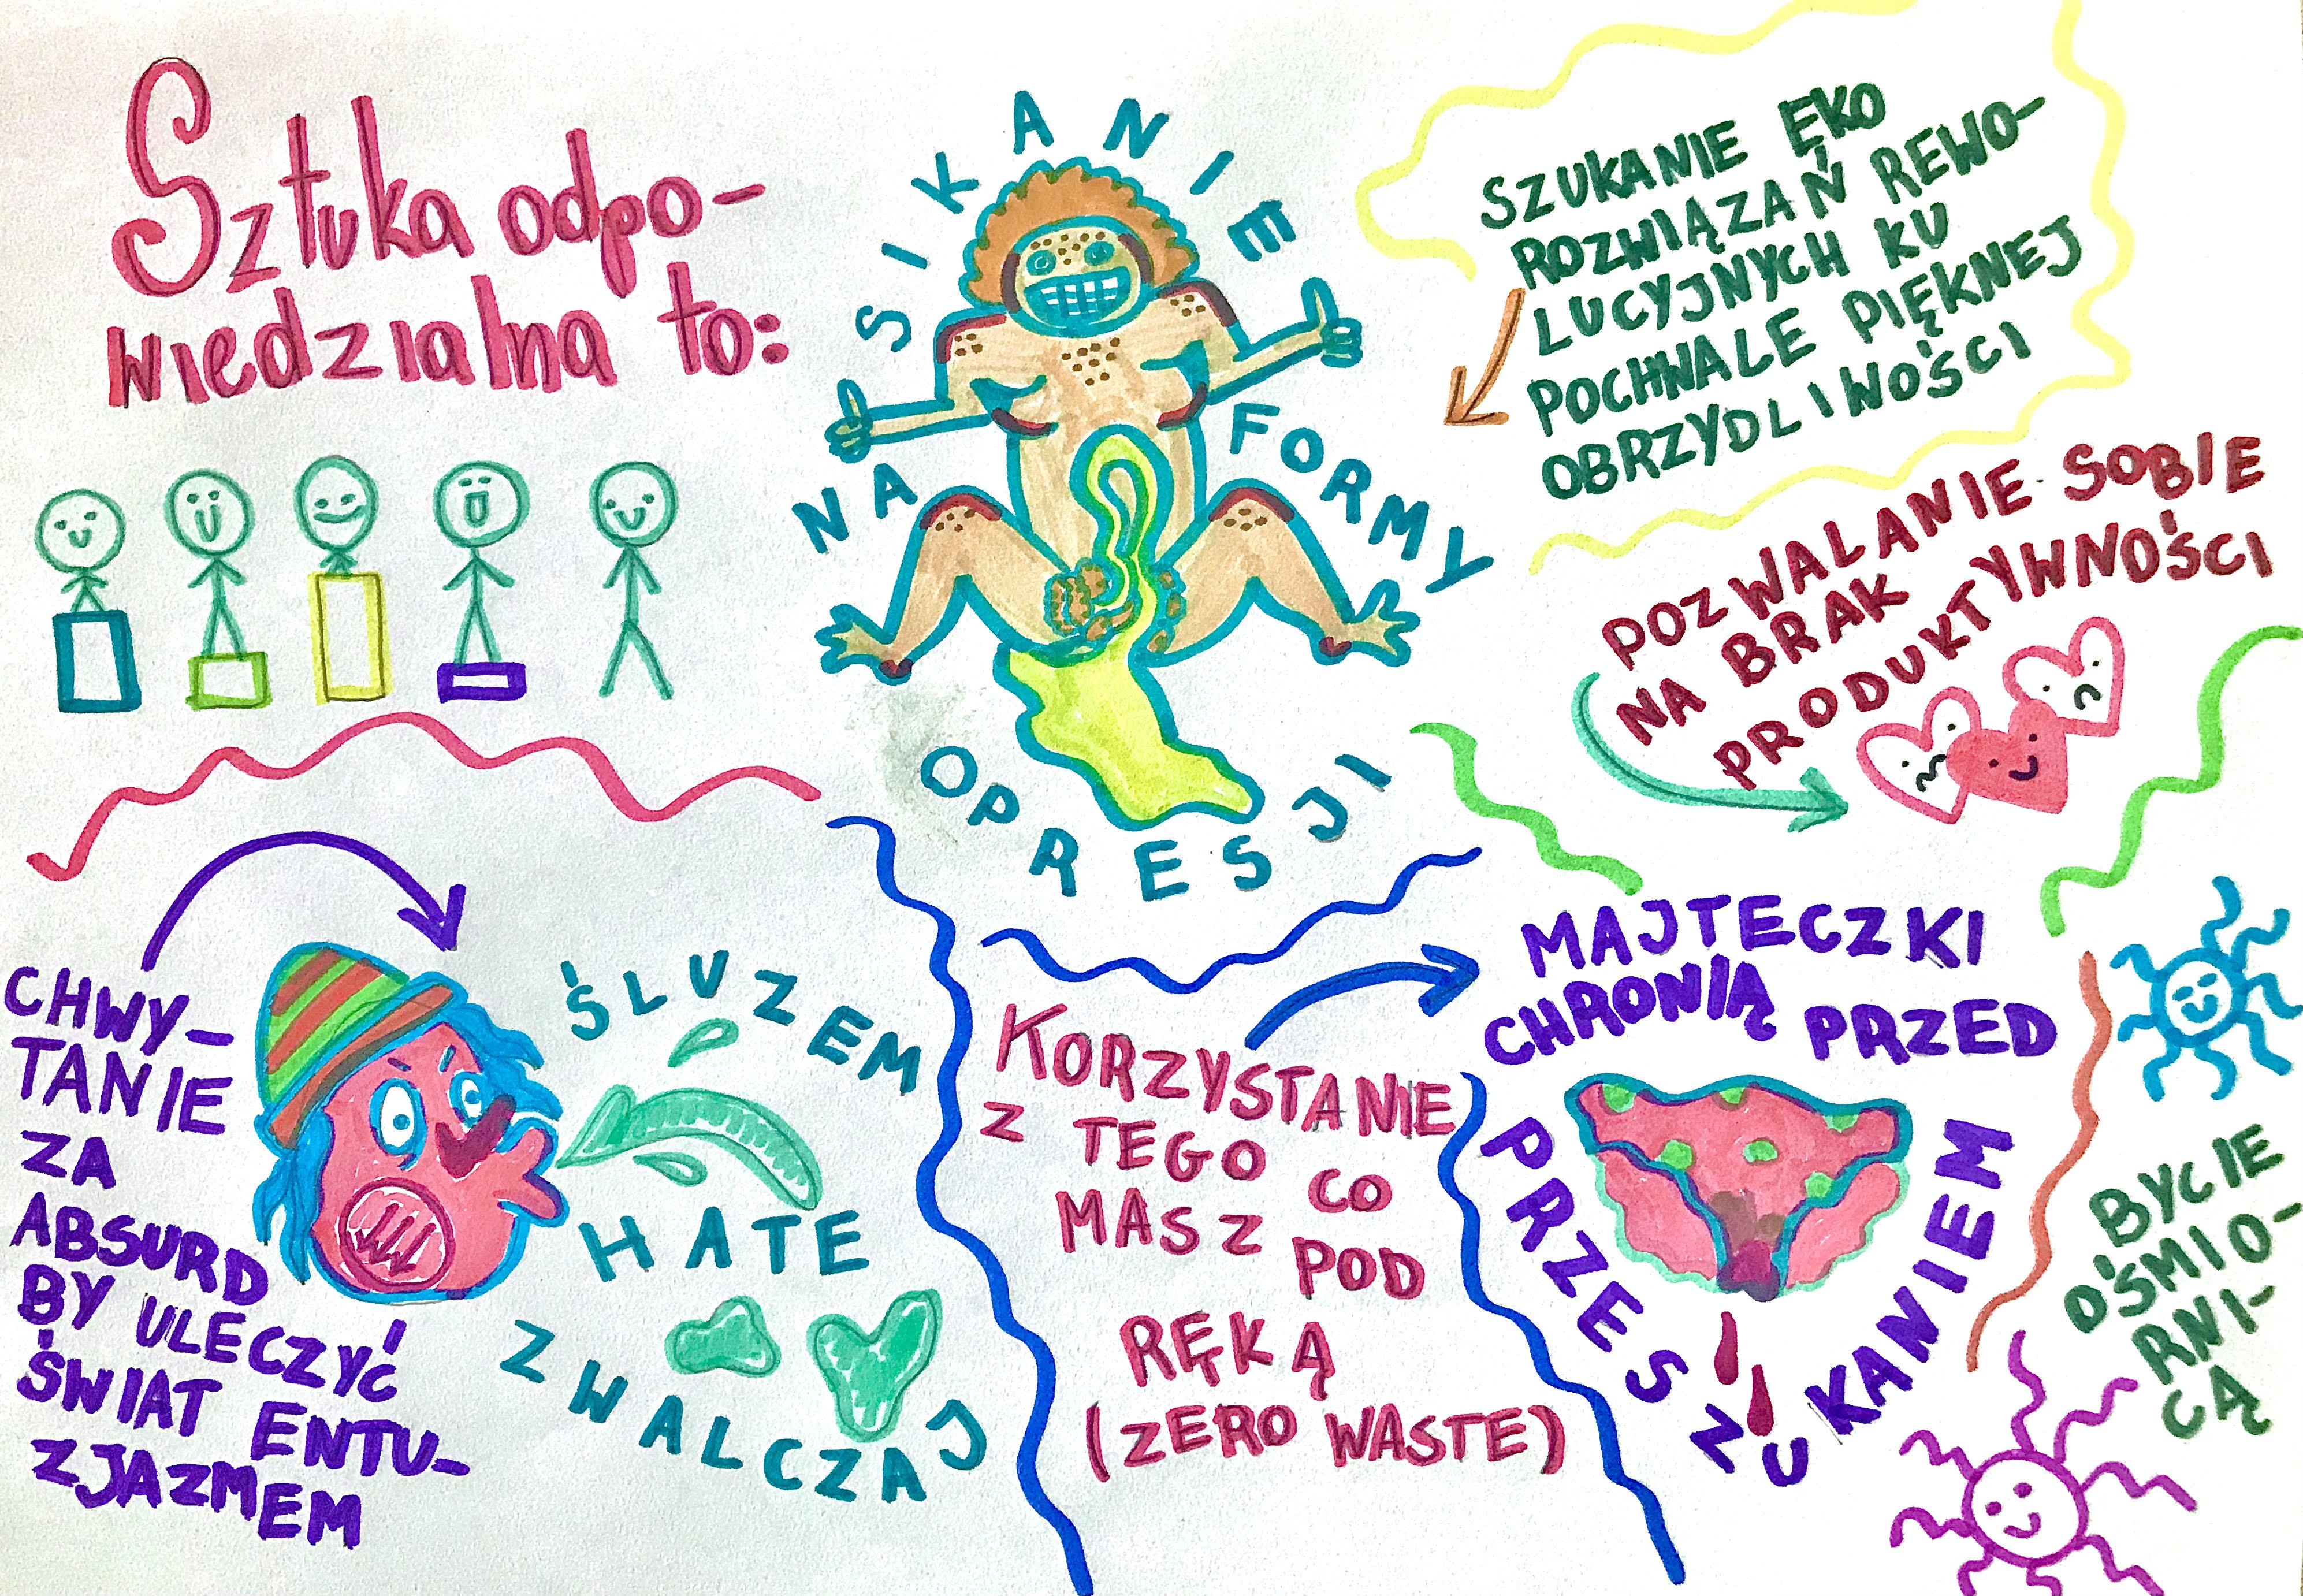 Sztuka odpo-
wiedzialna to:
SIKANIE
NA FORMY
OPRESJI
SZUKANIE ĘKO
ROZWIĄZAŃ REWO-
LUCYJNYCH KU
POCHWALE PIĘKNEJ
OBRZYDLIWOŚCI
POZWALANIE SOBIE
NA BRAK
PRODUKTYWNOŚCI
CHWY-
TANIE
ZA
ABSURD
BY ULECZYĆ
ŚWIAT ENTU-
ZJAZMEM
ŚLUZEM
HATE
ZWALCZAJ
KORZYSTANIE
Z TEGO CO
MASZ POD
RĘKĄ
(ZERO WASTE)
MAJTECZKI
CHRONIĄ PRZED
PRZESZUKANIEM
BYCIE
OŚMIO-
RNI-
CĄ